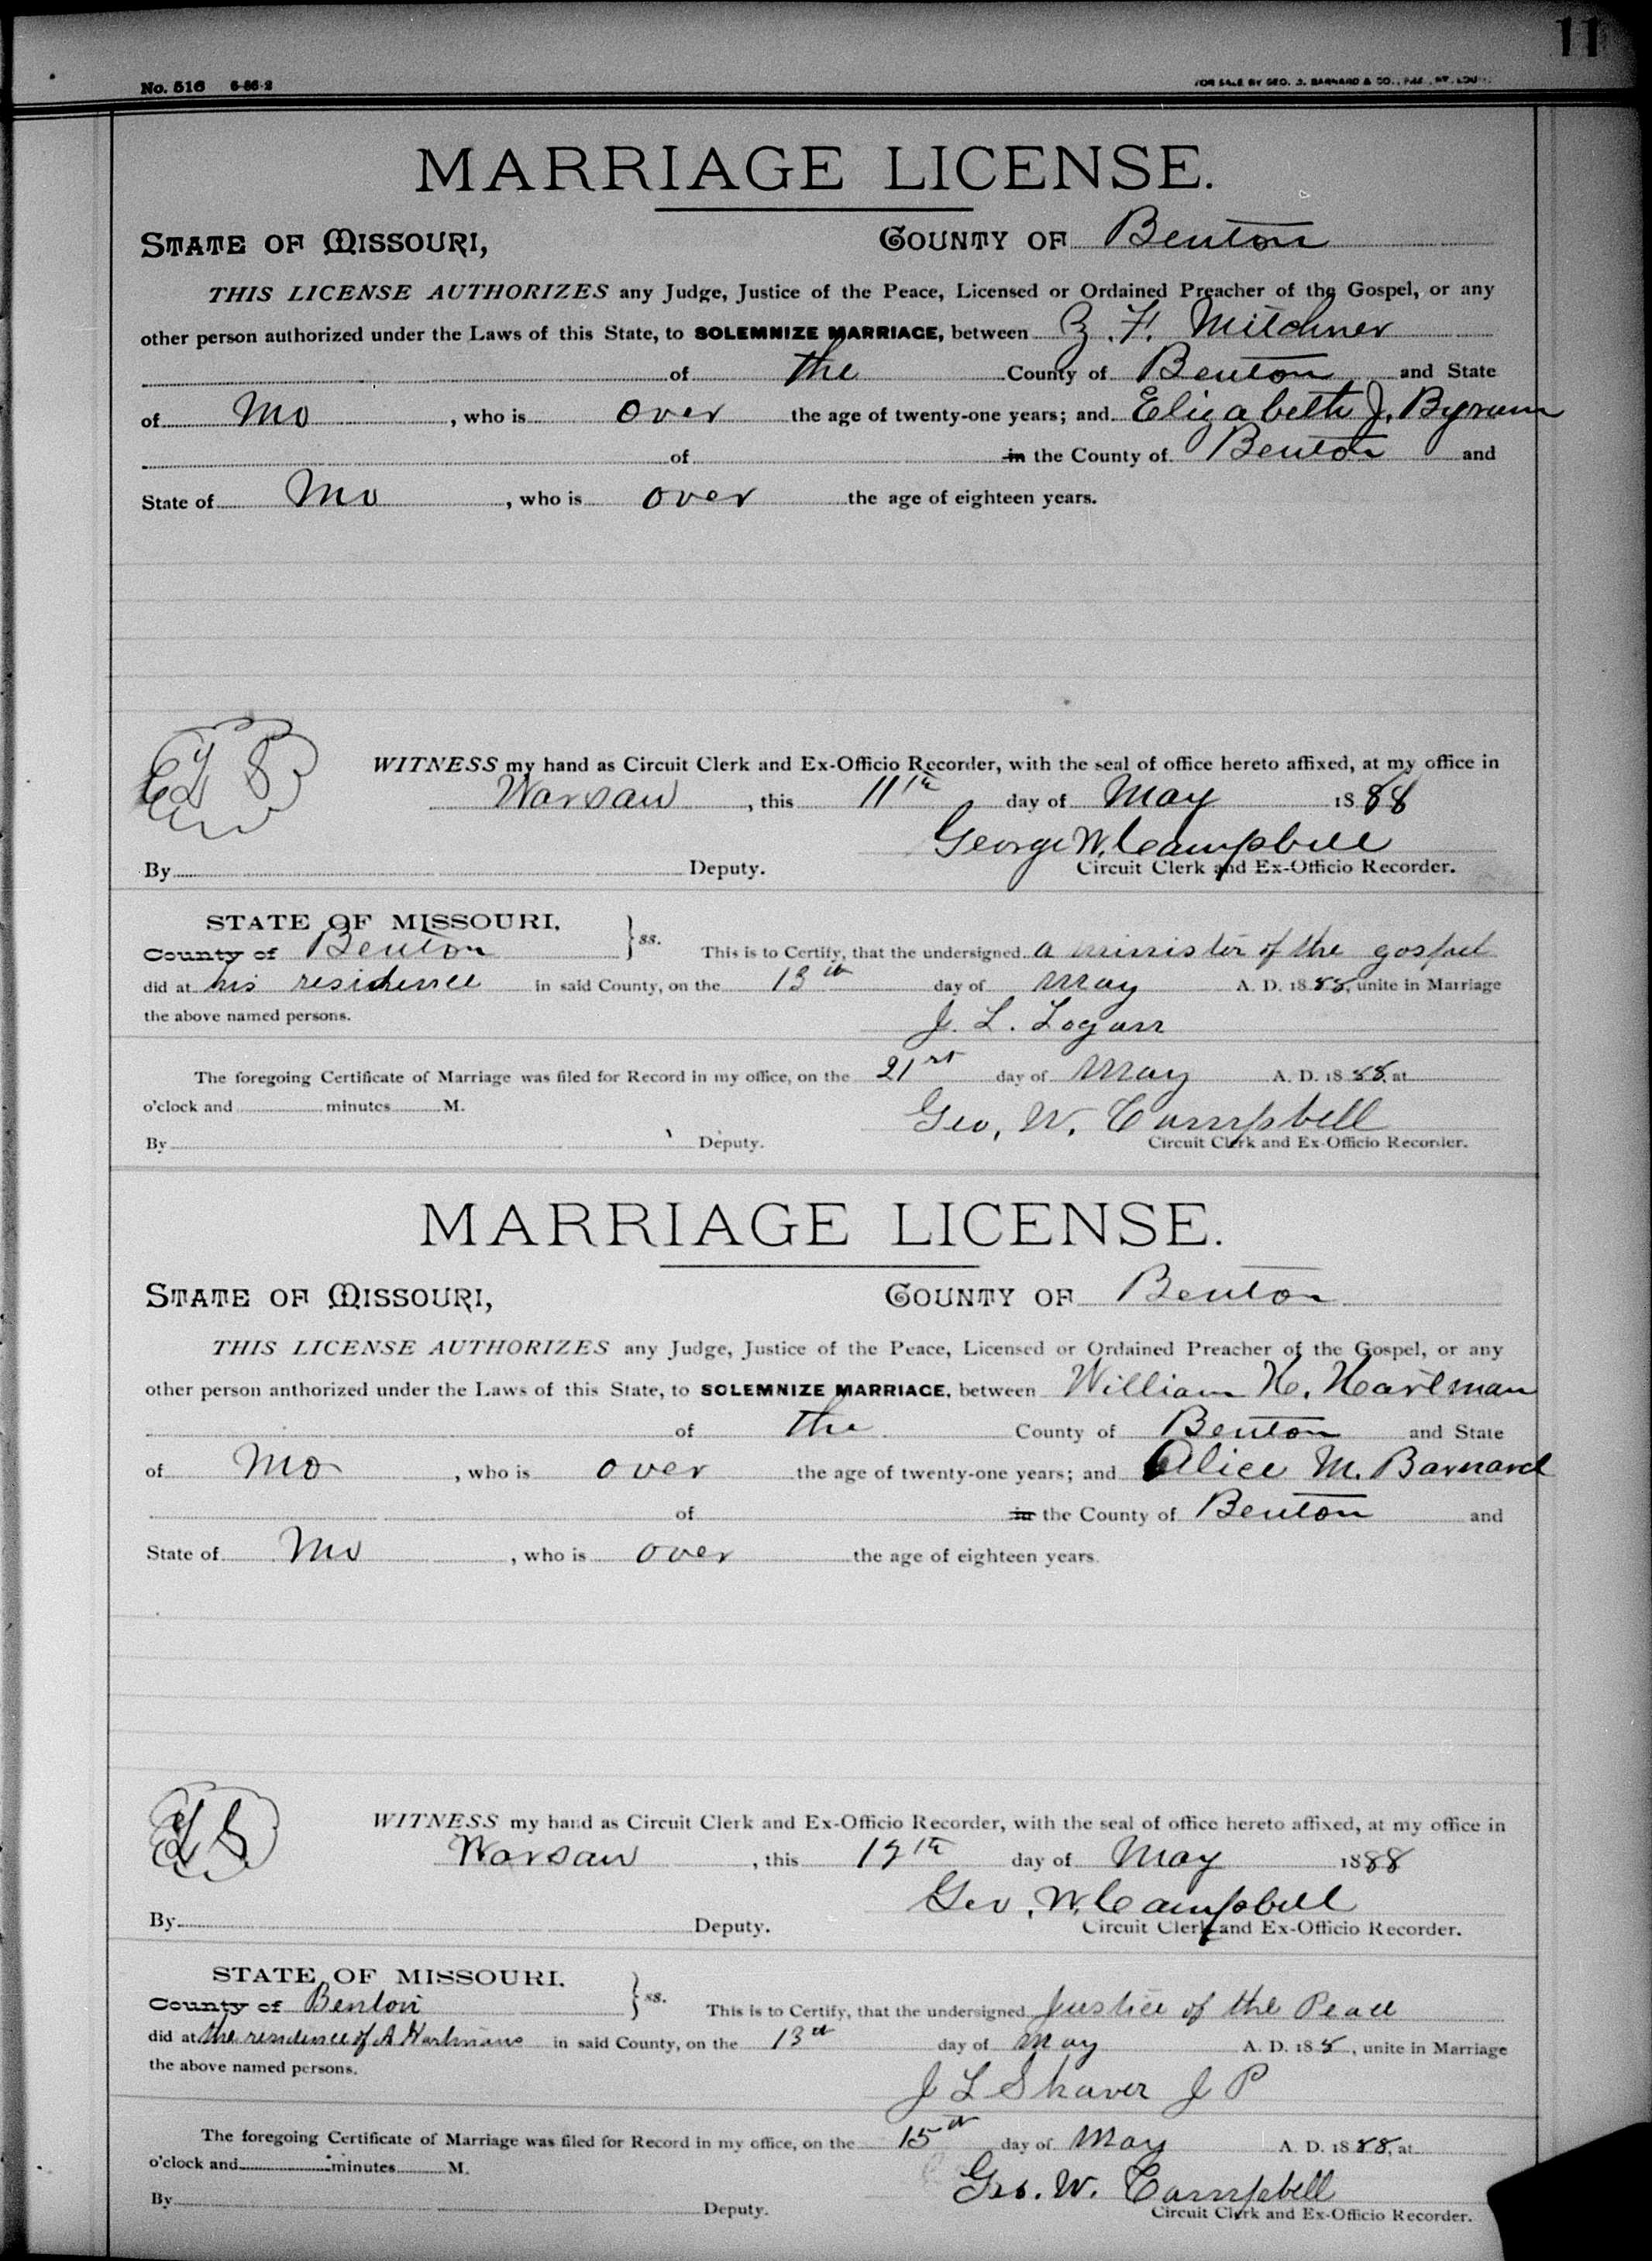 11
No. 516 6-86-2 FOR SALE BY GEO. D. BARNARD & CO.,
MARRIAGE LICENSE.
STATE OF MISSOURI, COUNTY OF Benton
THIS LICENSE AUTHORIZES any Judge, Justice of the Peace, Licensed or Ordained Preacher of the Gospel, or any
other person authorized under the Laws of this State, to SOLEMNIZE MARRIAGE, between Z. F. Mitchner
of the County of Benton and State
of Mo, who is over the age of twenty-one years; and Elizabeth J. Byrum
of in the County of Benton and
State of Mo, who is over the age of eighteen years.
L S
WITNESS my hand as Circuit Clerk and Ex-Officio Recorder, with the seal of office hereto affixed, at my office in
Warsaw, this 11th day of May 1888
George W. Campbell
By Deputy. Circuit Clerk and Ex-Officio Recorder.
STATE OF MISSOURI,
County of Benton } ss. This is to Certify, that the undersigned a minister of the gospel
did at his residence in said County, on the 13th day of May A. D. 1888, unite in Marriage
the above named persons. J. L. Logan
The foregoing Certificate of Marriage was filed for Record in my office, on the 21st day of May A. D. 1888, at
o'clock and minutes M. Geo. W. Campbell
By Deputy. Circuit Clerk and Ex-Officio Recorder.
MARRIAGE LICENSE.
STATE OF MISSOURI, COUNTY OF Benton
THIS LICENSE AUTHORIZES any Judge, Justice of the Peace, Licensed or Ordained Preacher of the Gospel, or any
other person anthorized under the Laws of this State, to SOLEMNIZE MARRIAGE, between William H. Hartman
of the County of Benton and State
of Mo, who is over the age of twenty-one years; and Alice M. Barnard
of in the County of Benton and
State of Mo, who is over the age of eighteen years.
L S
WITNESS my hand as Circuit Clerk and Ex-Officio Recorder, with the seal of office hereto affixed, at my office in
Warsaw, this 12th day of May 1888
Geo. W. Campbell
By Deputy. Circuit Clerk and Ex-Officio Recorder.
STATE OF MISSOURI.
County of Benton } ss. This is to Certify, that the undersigned Justice of the Peace
did at the residence of A Hartmans in said County, on the 13th day of May A. D. 188, unite in Marriage
the above named persons. J L Shaver J P
The foregoing Certificate of Marriage was filed for Record in my office, on the 15th day of May A. D. 1888, at
o'clock and minutes M. Geo. W. Campbell
By Deputy. Circuit Clerk and Ex-Officio Recorder.